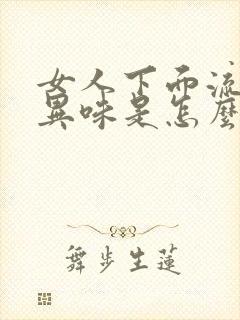 女人下面流
異味是怎麼
舞步生蓮